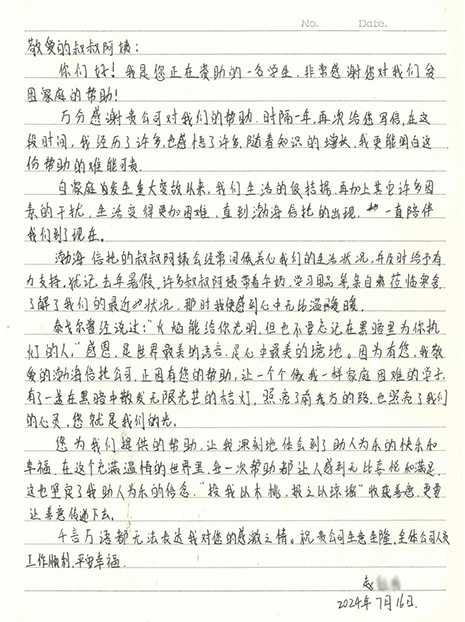 No. Date.
敬爱的叔叔阿姨：
你们好！我是您正在资助的一名学生，非常感谢您对我们贫
困家庭的帮助！
万分感谢贵公司对我们的帮助.时隔一年,再次给您写信,在这
段时间,我经历了许多,也感悟了许多,随着知识的增长,我更能明白这
份帮助的难能可贵.
自家庭发生重大变故以来,我们生活的很拮据,再加上其它许多因
素的干扰,生活变得更加困难,直到渤海信托的出现,一直陪伴
我们到了现在.
渤海信托的叔叔阿姨会经常问候关心我们的生活状况,并及时给予有
力支持,犹记去年暑假,许多叔叔阿姨带着牛奶,学习用品等亲自莅临寒舍
了解了我们的最近状况,那时我便感到心中无比温暖.
泰戈尔曾经说过:"火焰能给你光明,但也不要忘记在黑暗里为你执
灯的人,"感恩,是世界最美的语言,是心中最美的境地。因为有您,我敬
爱的渤海信托公司,正因有您的帮助,让一个个像我一样家庭困难的学生
有了一盏在黑暗中散发无限光芒的桔灯,照亮了前我方的路,也照亮了我们
的心灵,您就是我们的光.
您为我们提供的帮助,让我深刻地体会到了助人为乐的快乐和
幸福,在这个充满温情的世界里,每一次帮助都让人感到无比喜悦和满足,
这也坚定了我助人为乐的信念."投我以木桃,报之以琼瑶"收获善意,更要
让善意传递下去.
千言万语都无法表达我对您的感激之情.祝贵公司生意兴隆,全体公司人员
工作顺利,平安幸福.
赵
2024年7月16日.